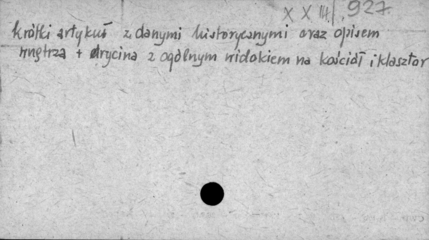 XXIII, 927.
krótki artykuł z danymi historycznymi oraz opisem
wnętrza + drycina z ogólnym widokiem na kościół i klasztor